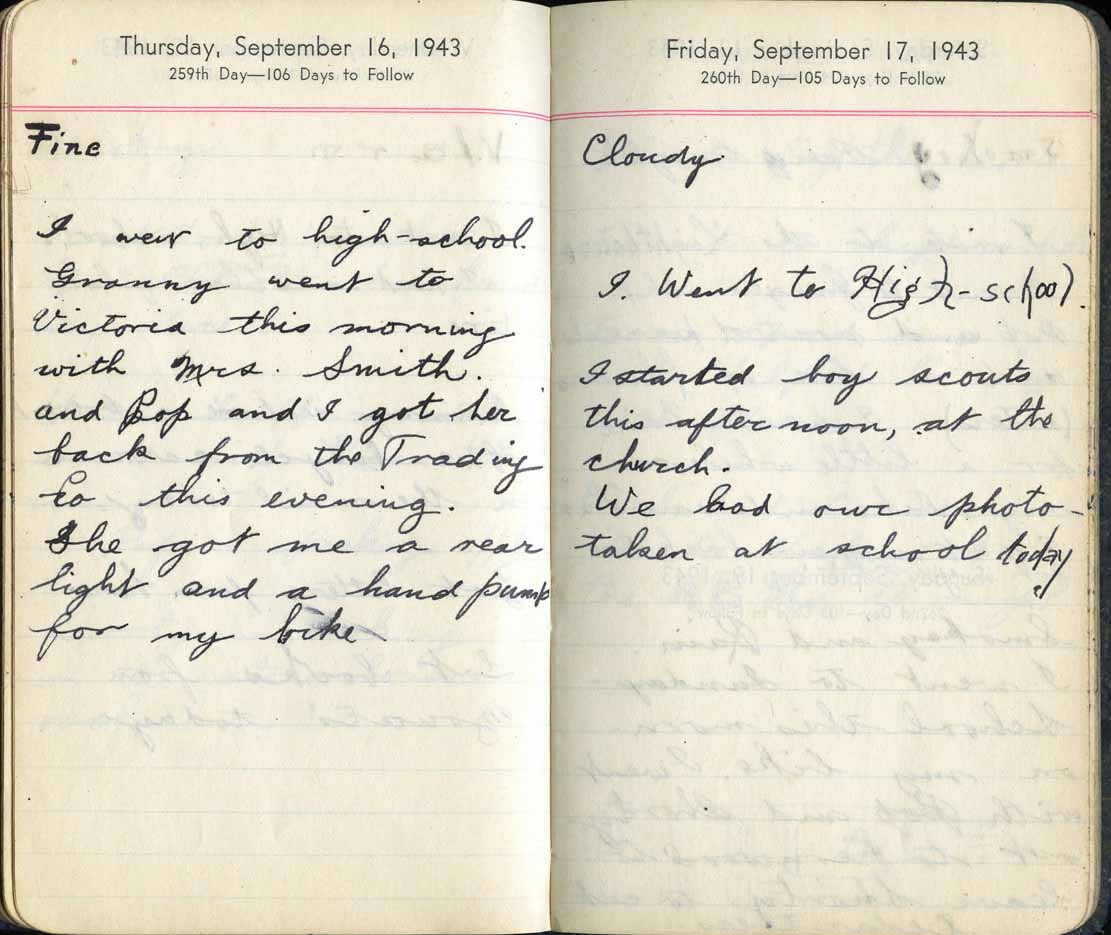 Thursday, September 16, 1943
259th Day—106 Days to Follow
Fine
I went to high-school.
Granny went to
Victoria this morning
with Mrs. Smith.
and Pop and I got her
back from the Trading
Co this evening.
She got me a rear
light and a hand pump
for my bike
Friday, September 17, 1943
260th Day—105 Days to Follow
Cloudy
I. Went to High-school.
I started boy scouts
this afternoon, at the
church.
We had our photo-
taken at school today